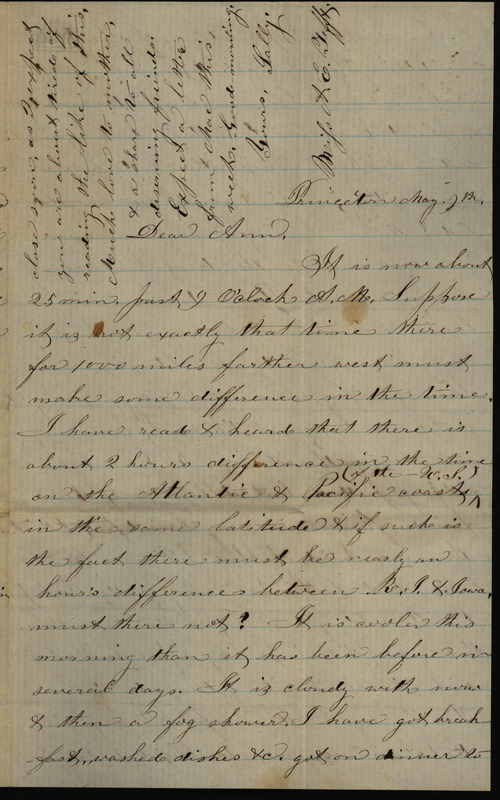 Princeton May. 9th.
Dear Ann,
It is now about
25 min. past 9 O'clock A.M. Suppose
it is not exactly that time there
for 1000 miles farther west must
make some difference in the time.
I have read & heard that there is
about 2 hours difference in the time
on the Atlantic & Pacific coasts (of the U.S.)
in the same latitude & if such is
the fact there must be nearly an
hour's difference between R.I. & Iowa,
must there not? It is cooler this
morning than it has been before in
several days. It is cloudy with now
& then a fog shower. I have got break-
fast, washed dishes &c. got on dinner to
close soon, as I expect
you are about tired of
reading the like of this.
Much love to mother,
& a share to all
deserving friends.
Expect a letter
from Mae this
week. Good-morning.
Yours, Sally.
Miss A. E. Tefft.